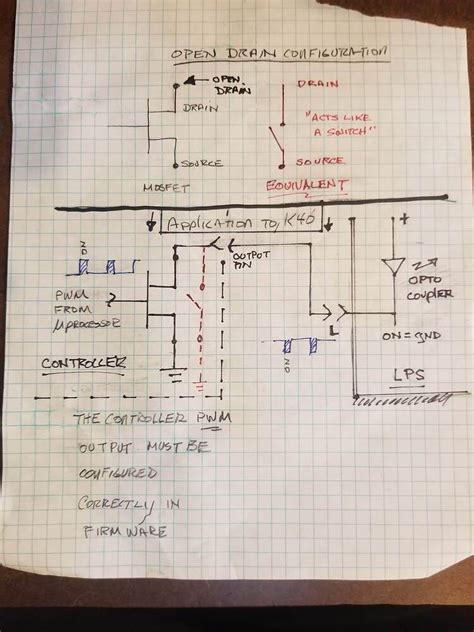 OPEN DRAIN CONFIGURATION
OPEN
DRAIN
DRAIN
SOURCE
MOSFET
DRAIN
"ACTS LIKE
A SWITCH"
SOURCE
EQUIVALENT
APPLICATION TO K40
OUTPUT
PIN
ON
PWM
FROM
µPROCESSOR
CONTROLLER
L
ON
+
OPTO
COUPLER
ON = GND
LPS
THE CONTROLLER PWM
OUTPUT MUST BE
CONFIGURED
CORRECTLY IN
FIRMWARE